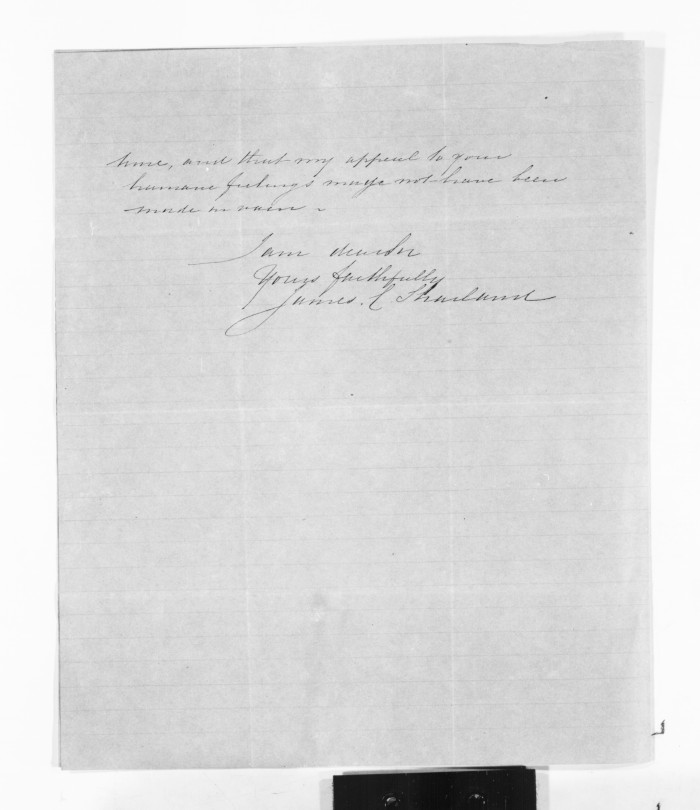 time, and that my appeal to your
humane feelings maye not have been
made in vain
I am dear Sir
Yours faithfully
James. C Sharland